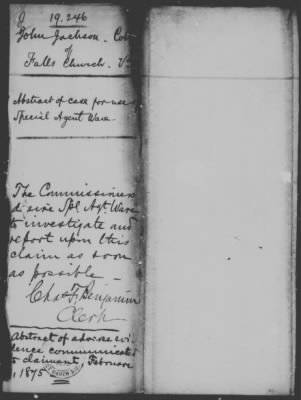 19.246
John Jackson. Col
of
Falls Church. Va
Abstract of case for use
Special Agent Ware
The Commissioners
desire Spl. Agt. Ware
to investigate and
report upon this
claim as soon
as possible
Chas. F. Benjamin
Clerk
Abstract of adverse evi
dence communicated
to claimant,
, 1875